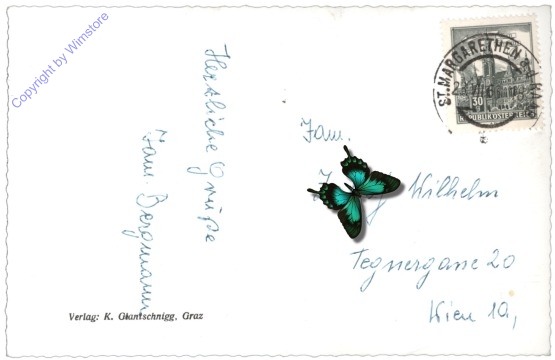 Copyright by Wimstore
Herzliche Grüße
Fam. Bergmann
Verlag: K. Glantschnigg, Graz
ST. MARGARETHEN
30
REPUBLIK ÖSTERREICH
Fam.
Wilhelm
Tegnergasse 20
Wien 10,